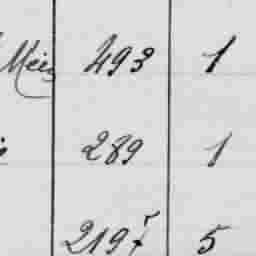 Meis 493 1
289 1
2197 5